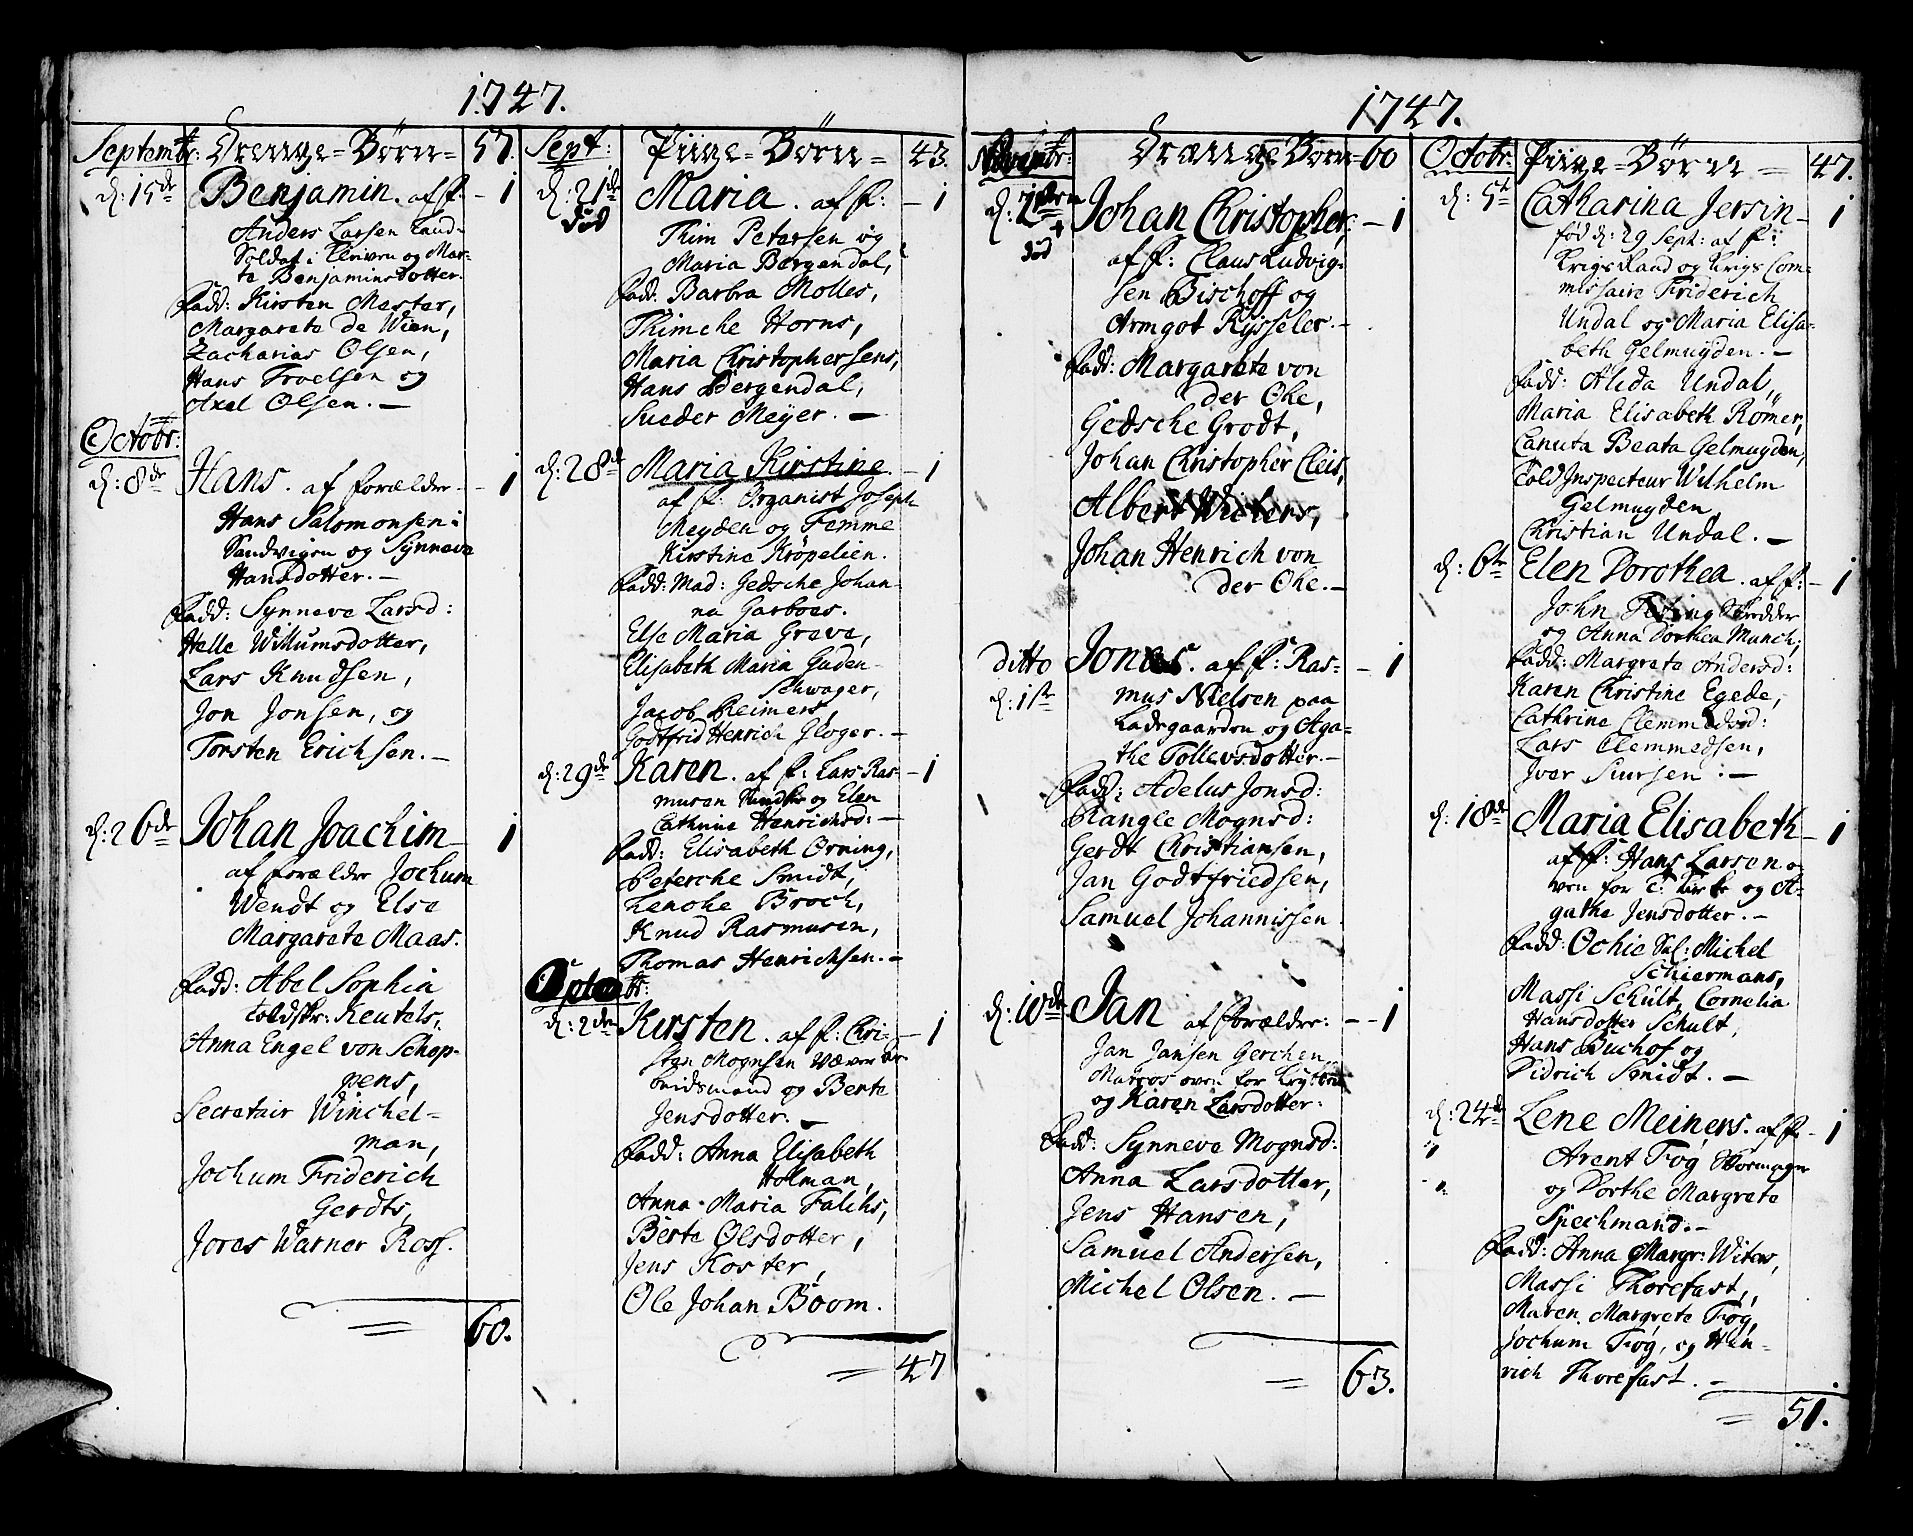 1747.
Septembr: Drenge=Børn= 57.
d: 15de Benjamin. af f. - 1
Anders Larsen Land=
Soldat i Elviven og Mar=
te Benjaminsdotter.
Fadd: Kirsten Mester,
Margarete de Wien,
Zacharias Olsen,
Hans Troelsen og
Axel Olsen. —
Octobr:
d: 8de Hans. af forælder - 1
Hans Salomonsen i
Sandvigen og Synneve
Hansdotter. —
Fadd: Synneve Larsd:
Helle Willumsdotter,
Lars Knudsen,
Jon Jonsen, og
Torsten Erichsen. —
d: 26de Johan Joachim - 1
af forældre Jochum
Wendt og Else
Margarete Maas.
Fadd: Abel Sophia
toldskr: Keutels,
Anna Engel von Schop-
pens,
Secretair Winchel=
man,
Jochum Friderich
Gerdts,
Jores Warner Ross.
60.
Sept: Piige=Børn= 43.
d: 21de Maria. af f: - 1
død
Thim Petersen og
Maria Bergendal,
Fadd: Barbra Molles,
Thimche Horns,
Maria Christophersens,
Hans Bergendal,
Sueder Meyer. —
d: 28de Maria Kirstine. - 1
af f: Organist Joseph
Meyden og Femme
Kirstine Krøpelien.
Fadd: Mad: Gedsche Johan-
na Garboes.
Else Maria Greve,
Elisabeth Maria Guden-
Schwager,
Jacob Reimers,
Godtfrid Henrich Gloger. —
d: 29de Karen. af f: Lars Ras- - 1
musen Kundskr og Elen
Cathrine Henrichsd: —
Fadd: Elisabeth Orning,
Peterche Smidt,
Lenche Broch,
Knud Rasmusen,
Thomas Henrichsen. —
br:
d: 2den Kirsten. af f: Chri- - 1
sten Mognsen Wæver Ar-
beidsmand og Berte
Jensdotter. —
Fadd: Anna Elisabeth
Holman,
Anna Maria Falchs,
Berte Olsdotter,
Jens Koster,
Ole Johan Boom.
47
1747.
Novembr: Drænge Børn= 60
d: 1sten Johan Christopher, - 1
død
af f: Claus Ludvig-
sen Bischoff og
Armgot Rysseler. —
Fadd: Margarete von
der Ohe,
Gedsche Grodt,
Johan Christopher Cleis,
Albert Wichers,
Johan Henrich von
der Ohe. —
ditto Jones. af f: Ras- - 1
d: 1ste mus Nielsen paa
Ladegaarden og Aga=
the Tollevsdotter. —
Fadd: Adelus Jonsd:
Rangle Mognsd:
Gerdt Christiansen,
Jan Godtfriedsen,
Samuel Johannissen.
d: 10de Jan af forælder: - - 1
Jan Jansen Gerchen
Marcos oven for
og Karen Larsdotter:
Fadd: Synneve Mognsd:
Anna Larsdotter,
Jens Hansen,
Samuel Andersen,
Michel Olsen. —
63.
Octobr: Piige=Børn = 47.
d: 5te Catharina Jersin - 1
fød d: 29 Sept: af f:
Krigs Raad og Krigs Com-
missaire Friderich
Undal og Maria Elisa-
beth Gelmuyden. —
Fadd: Alida Undal,
Maria Elisabeth Rømer,
Canuta Beata Gelmuyden,
Told Inspecteur Wilhelm
Gelmuyden,
Christian Undal. —
d: 6te Elen Dorothea. af f: - 1
John Skredder
og Anna Dorthea Munch,
Fadd: Margrete Andersd:
Karen Christine Egede,
Cathrine Clemmedsd:
Lars Clemmedsen,
Iver Siursen : —
d: 18de Maria Elisabeth - 1
af f: Hans Larsen o-
ven for C: Kirke og A-
gathe Jensdotter. —
Fadd: Ochie Sal: Michel
Schiermans,
Massi Schult, Cornelia
Hansdotter Schult,
Hans Buchof og
Didrich Smidt. —
d: 24de Lene Meiners. af f. - 1
Arent Trøg Skoemager
og Dorthe Margrete
Spechmand. —
Fadd: Anna Margr: Witers,
Massi Thorefast,
Maren Margrete Trøg,
Jochum Trøg, og Hen-
rich Thorefast. —
51.